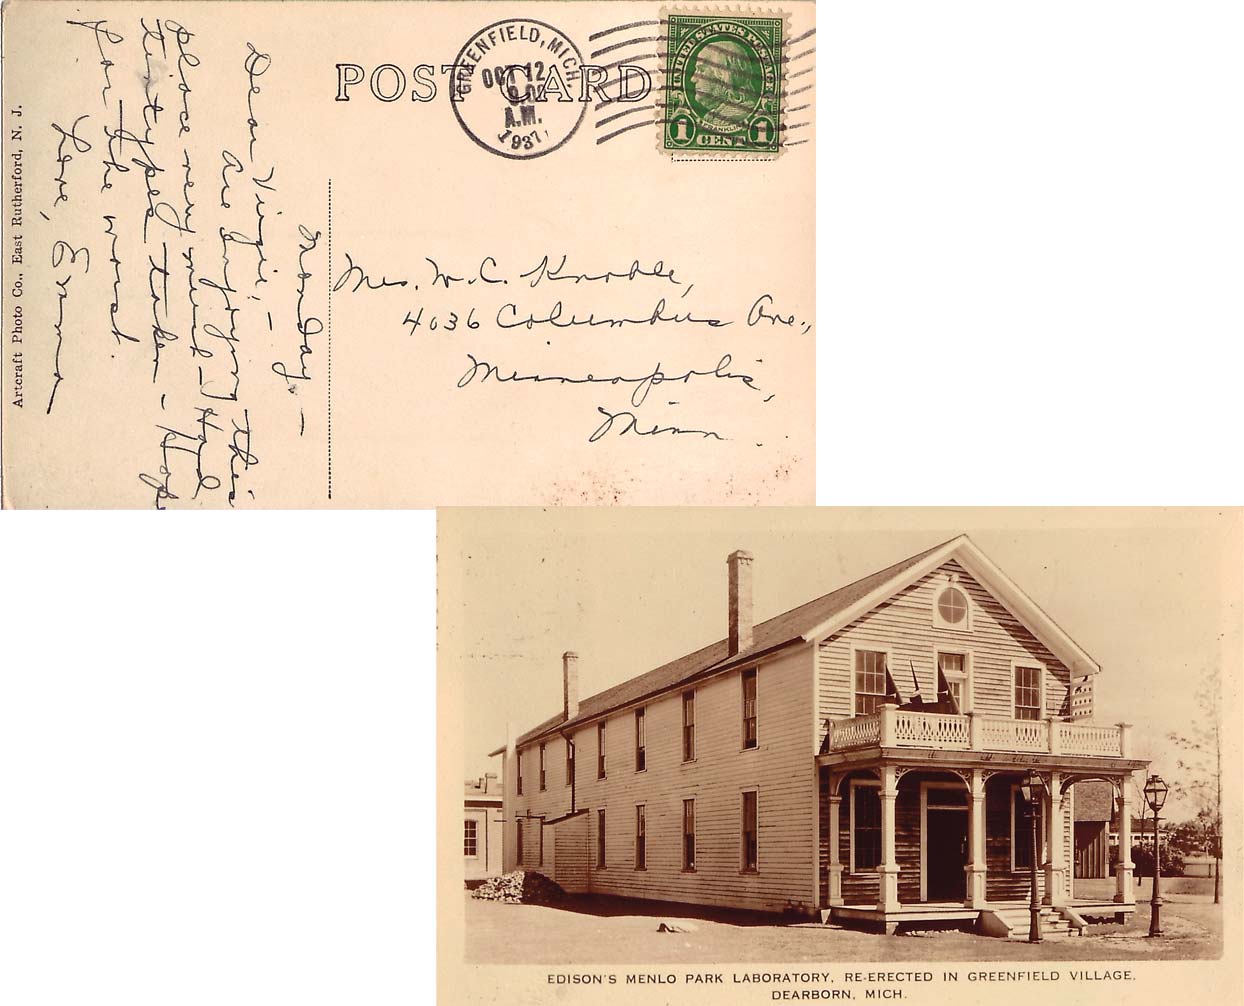 POST CARD
GREENFIELD, MICH.
OCT 12
9.00
A.M.
1937
UNITED STATES POSTAGE
FRANKLIN
1 CENT 1
Monday. —
Dear Virgie, —
Are enjoying this
place very much — Had
tintypes taken — Hope
for the worst.
Love, Emma
Mrs. W. C. Knoble,
4036 Columbus Ave.,
Minneapolis,
Minn.
Artcraft Photo Co., East Rutherford, N. J.
EDISON'S MENLO PARK LABORATORY, RE-ERECTED IN GREENFIELD VILLAGE.
DEARBORN, MICH.